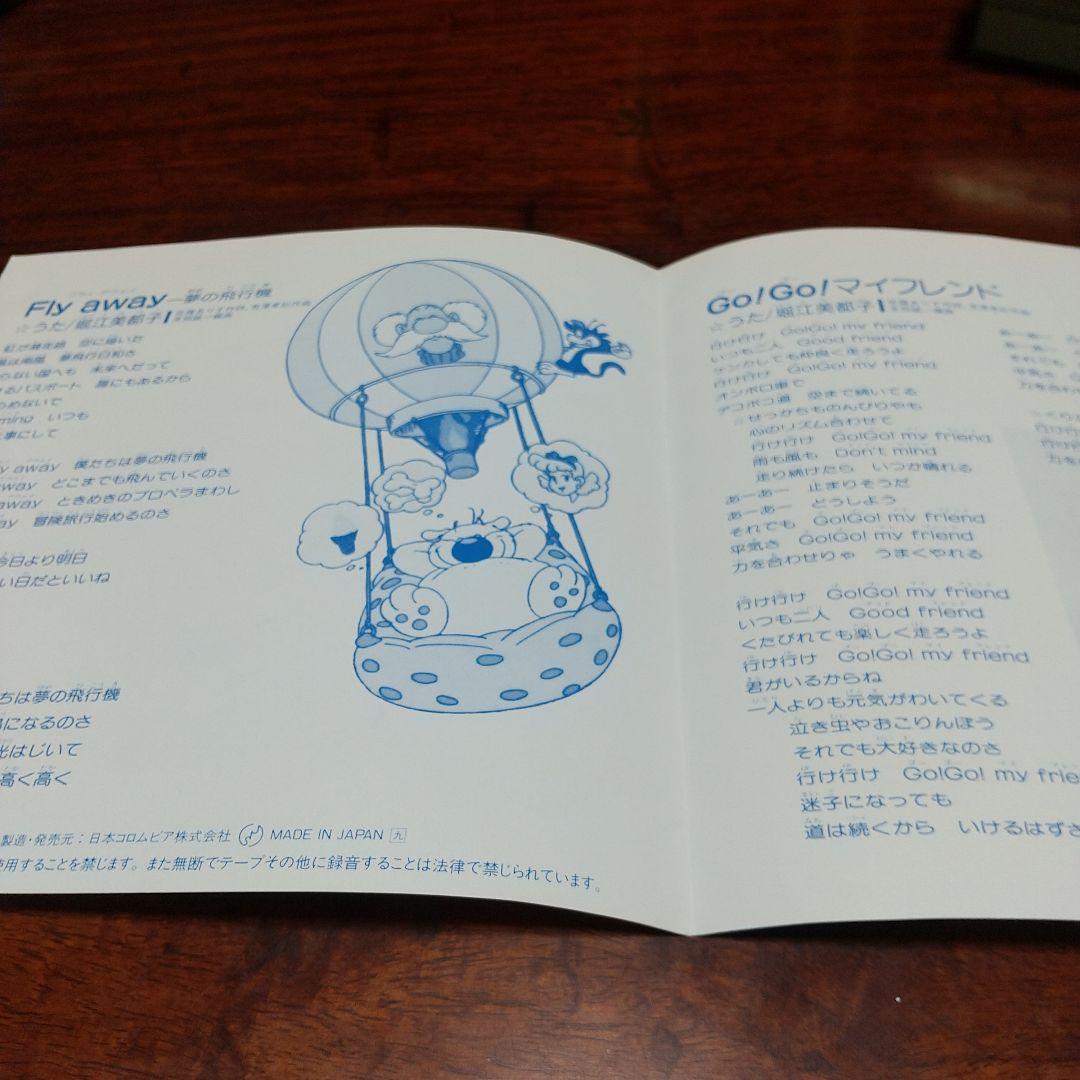 Fly away—夢の飛行機
☆うた/堀江美都子
空に描いた
夢飛行日和さ
らない国へも 未来へだって
るパスポート 誰にもあるから
らめないで
ming いつも
事にして
y away 僕たちは夢の飛行機
way どこまでも飛んでいくのさ
away ときめきのプロペラまわし
ay 冒険旅行始めるのさ
今日より明日
い日だといいね
ちは夢の飛行機
になるのさ
光はじいて
高く高く
製造・発売元：日本コロムビア株式会社 MADE IN JAPAN 九
使用することを禁じます。また無断でテープその他に録音することは法律で禁じられています。
Go!Go!マイフレンド
☆うた/堀江美都子
行け行け Go!Go! my friend
いつも二人 Good friend
ケンカしても仲良く走ろうよ
行け行け Go!Go! my friend
オンボロ車で
デコボコ道 空まで続いてる
☆せっかちものんびりやも
心のリズム合わせて
行け行け Go!Go! my friend
雨も風も Don't mind
走り続けたら いつか晴れる
あーあー 止まりそうだ
あーあー どうしよう
それでも Go!Go! my friend
平気さ Go!Go! my friend
力を合わせりゃ うまくやれる
行け行け Go!Go! my friend
いつも二人 Good friend
くたびれても楽しく走ろうよ
行け行け Go!Go! my friend
君がいるからね
一人よりも元気がわいてくる
泣き虫やおこりんぼう
それでも大好きなのさ
行け行け Go!Go! my frie
迷子になっても
道は続くから いけるはずさ
あーあー
あーあー
それでも
平気さ
力を合わ
行け
力を